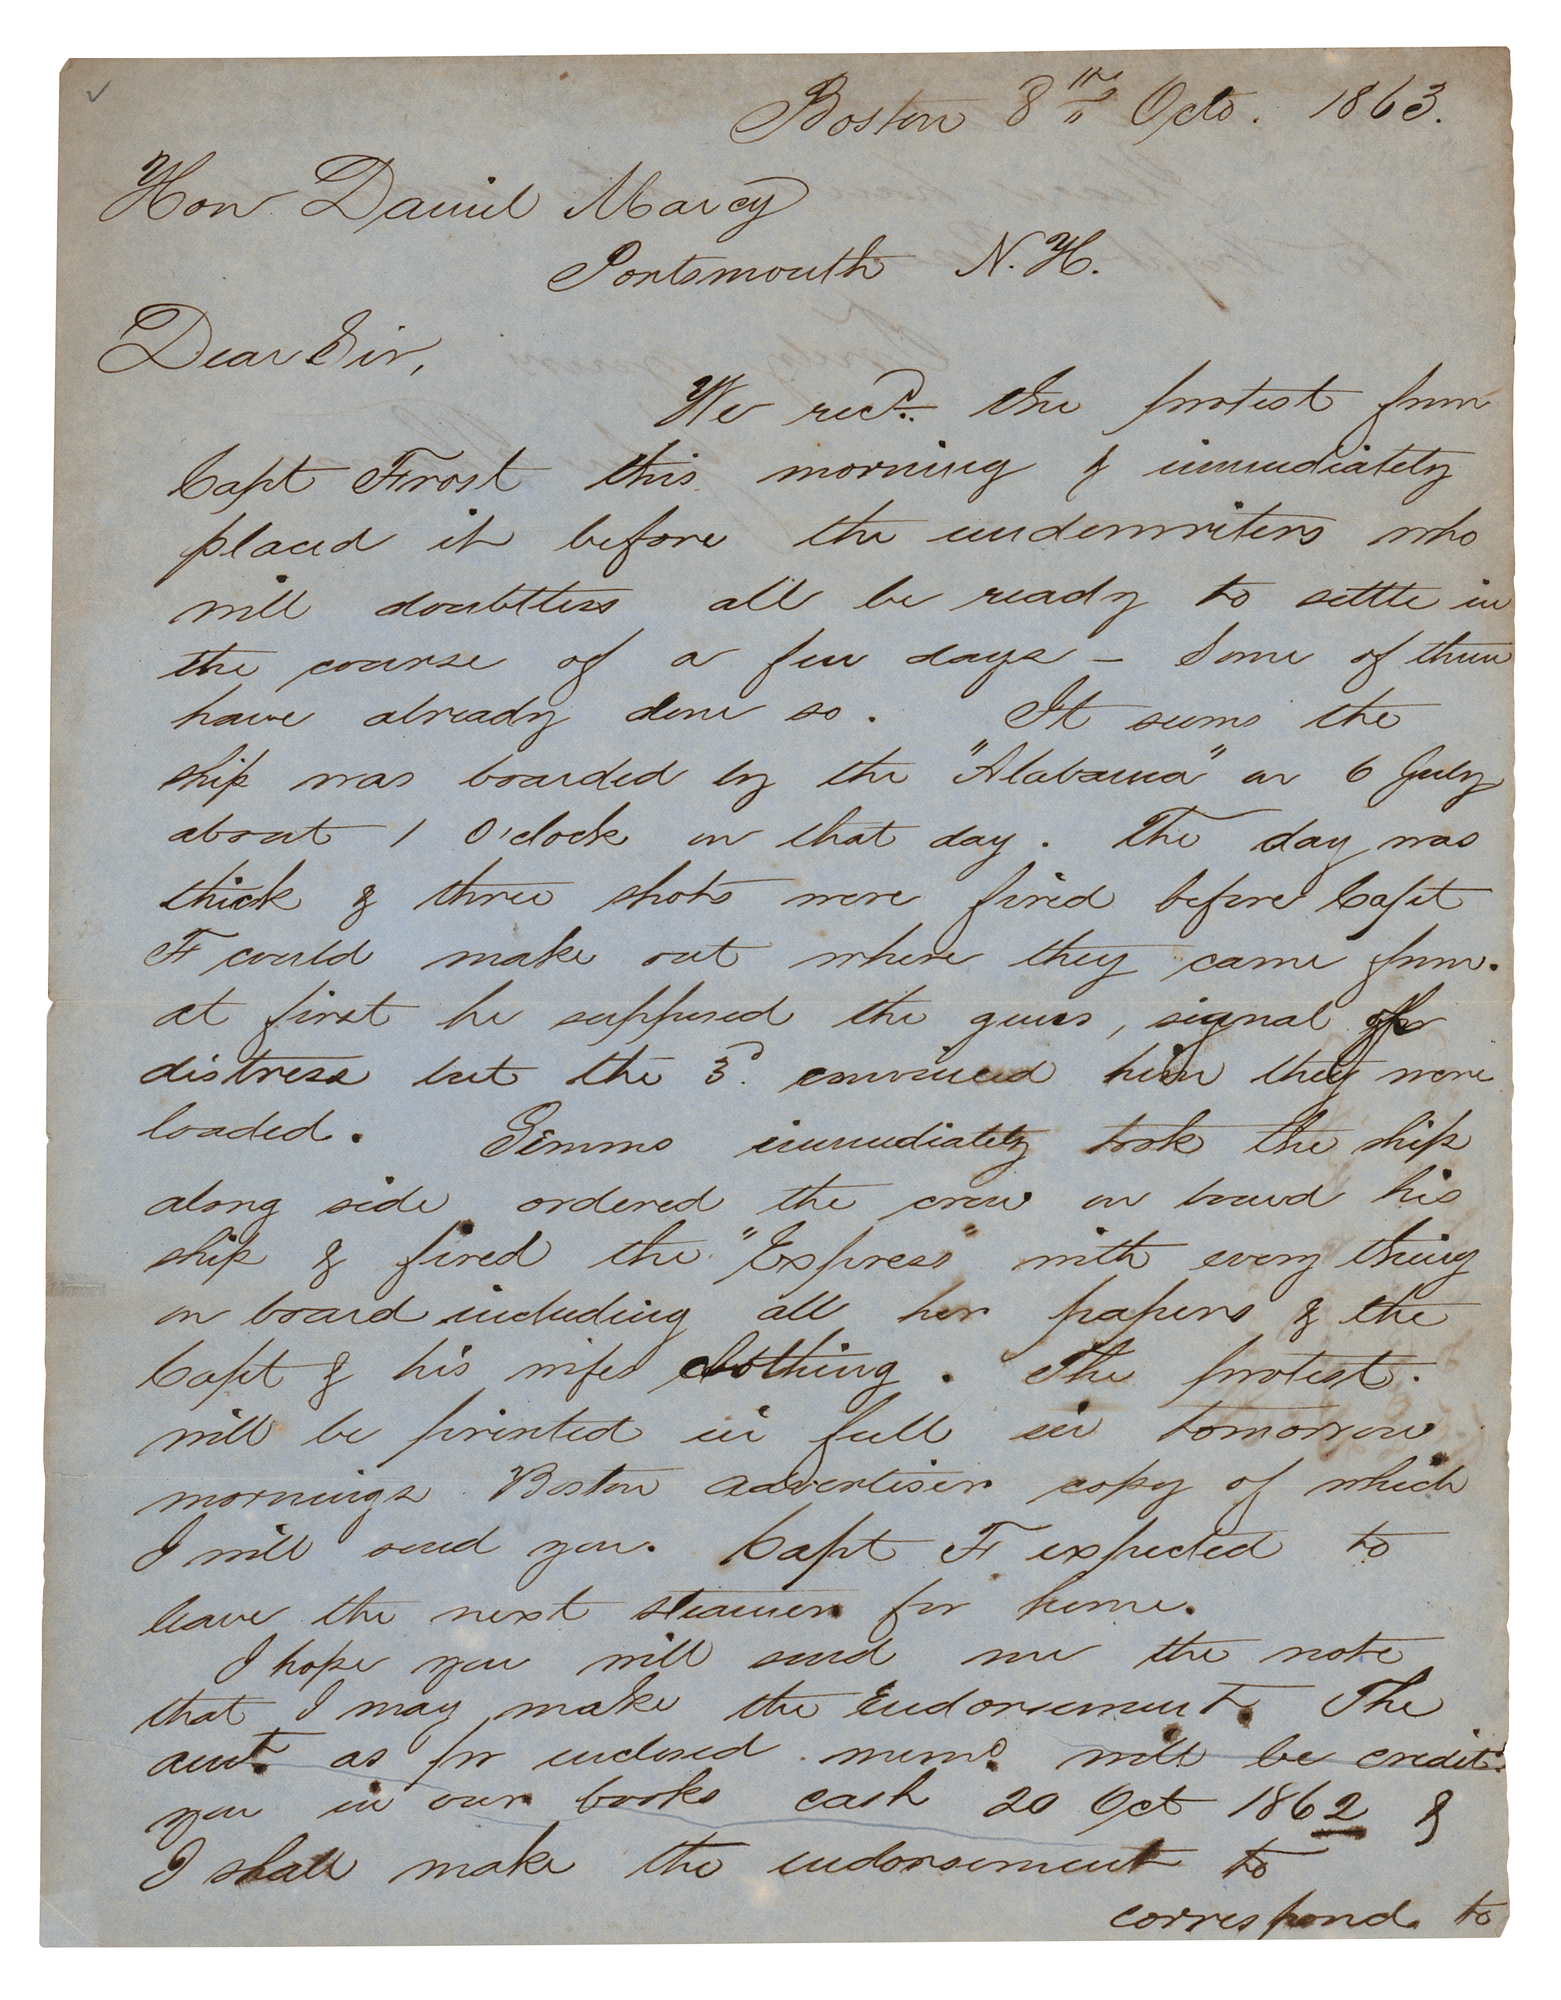 Boston 8th Octo. 1863.
Hon Daniel Marcy
Portsmouth N.H.
Dear Sir,
We recd. the protest from
Capt Frost this morning & immediately
placed it before the underwriters who
will doubtless all be ready to settle in
the course of a few days – Some of them
have already done so. It seems the
ship was boarded by the "Alabama" on 6 July
about 1 O'clock on that day. The day was
thick & three shots were fired before Capt
F could make out where they came from.
at first he supposed the guns, signal of
distress but the 3d. convinced him they were
loaded. Semms immediately took the ship
along side ordered the crew on board his
ship & fired the "Express" with every thing
on board including all her papers & the
Capt & his wifes clothing. The protest.
will be printed in full in tomorrow
mornings Boston advertiser copy of which
I will send you. Capt F expected to
leave the next steamer for home.
I hope you will send me the note
that I may make the Endorsement. The
amt. as pr inclosed memo. will be credit.
you in our books cash 20 Oct 1862 &
I shall make the endorsement to
correspond to